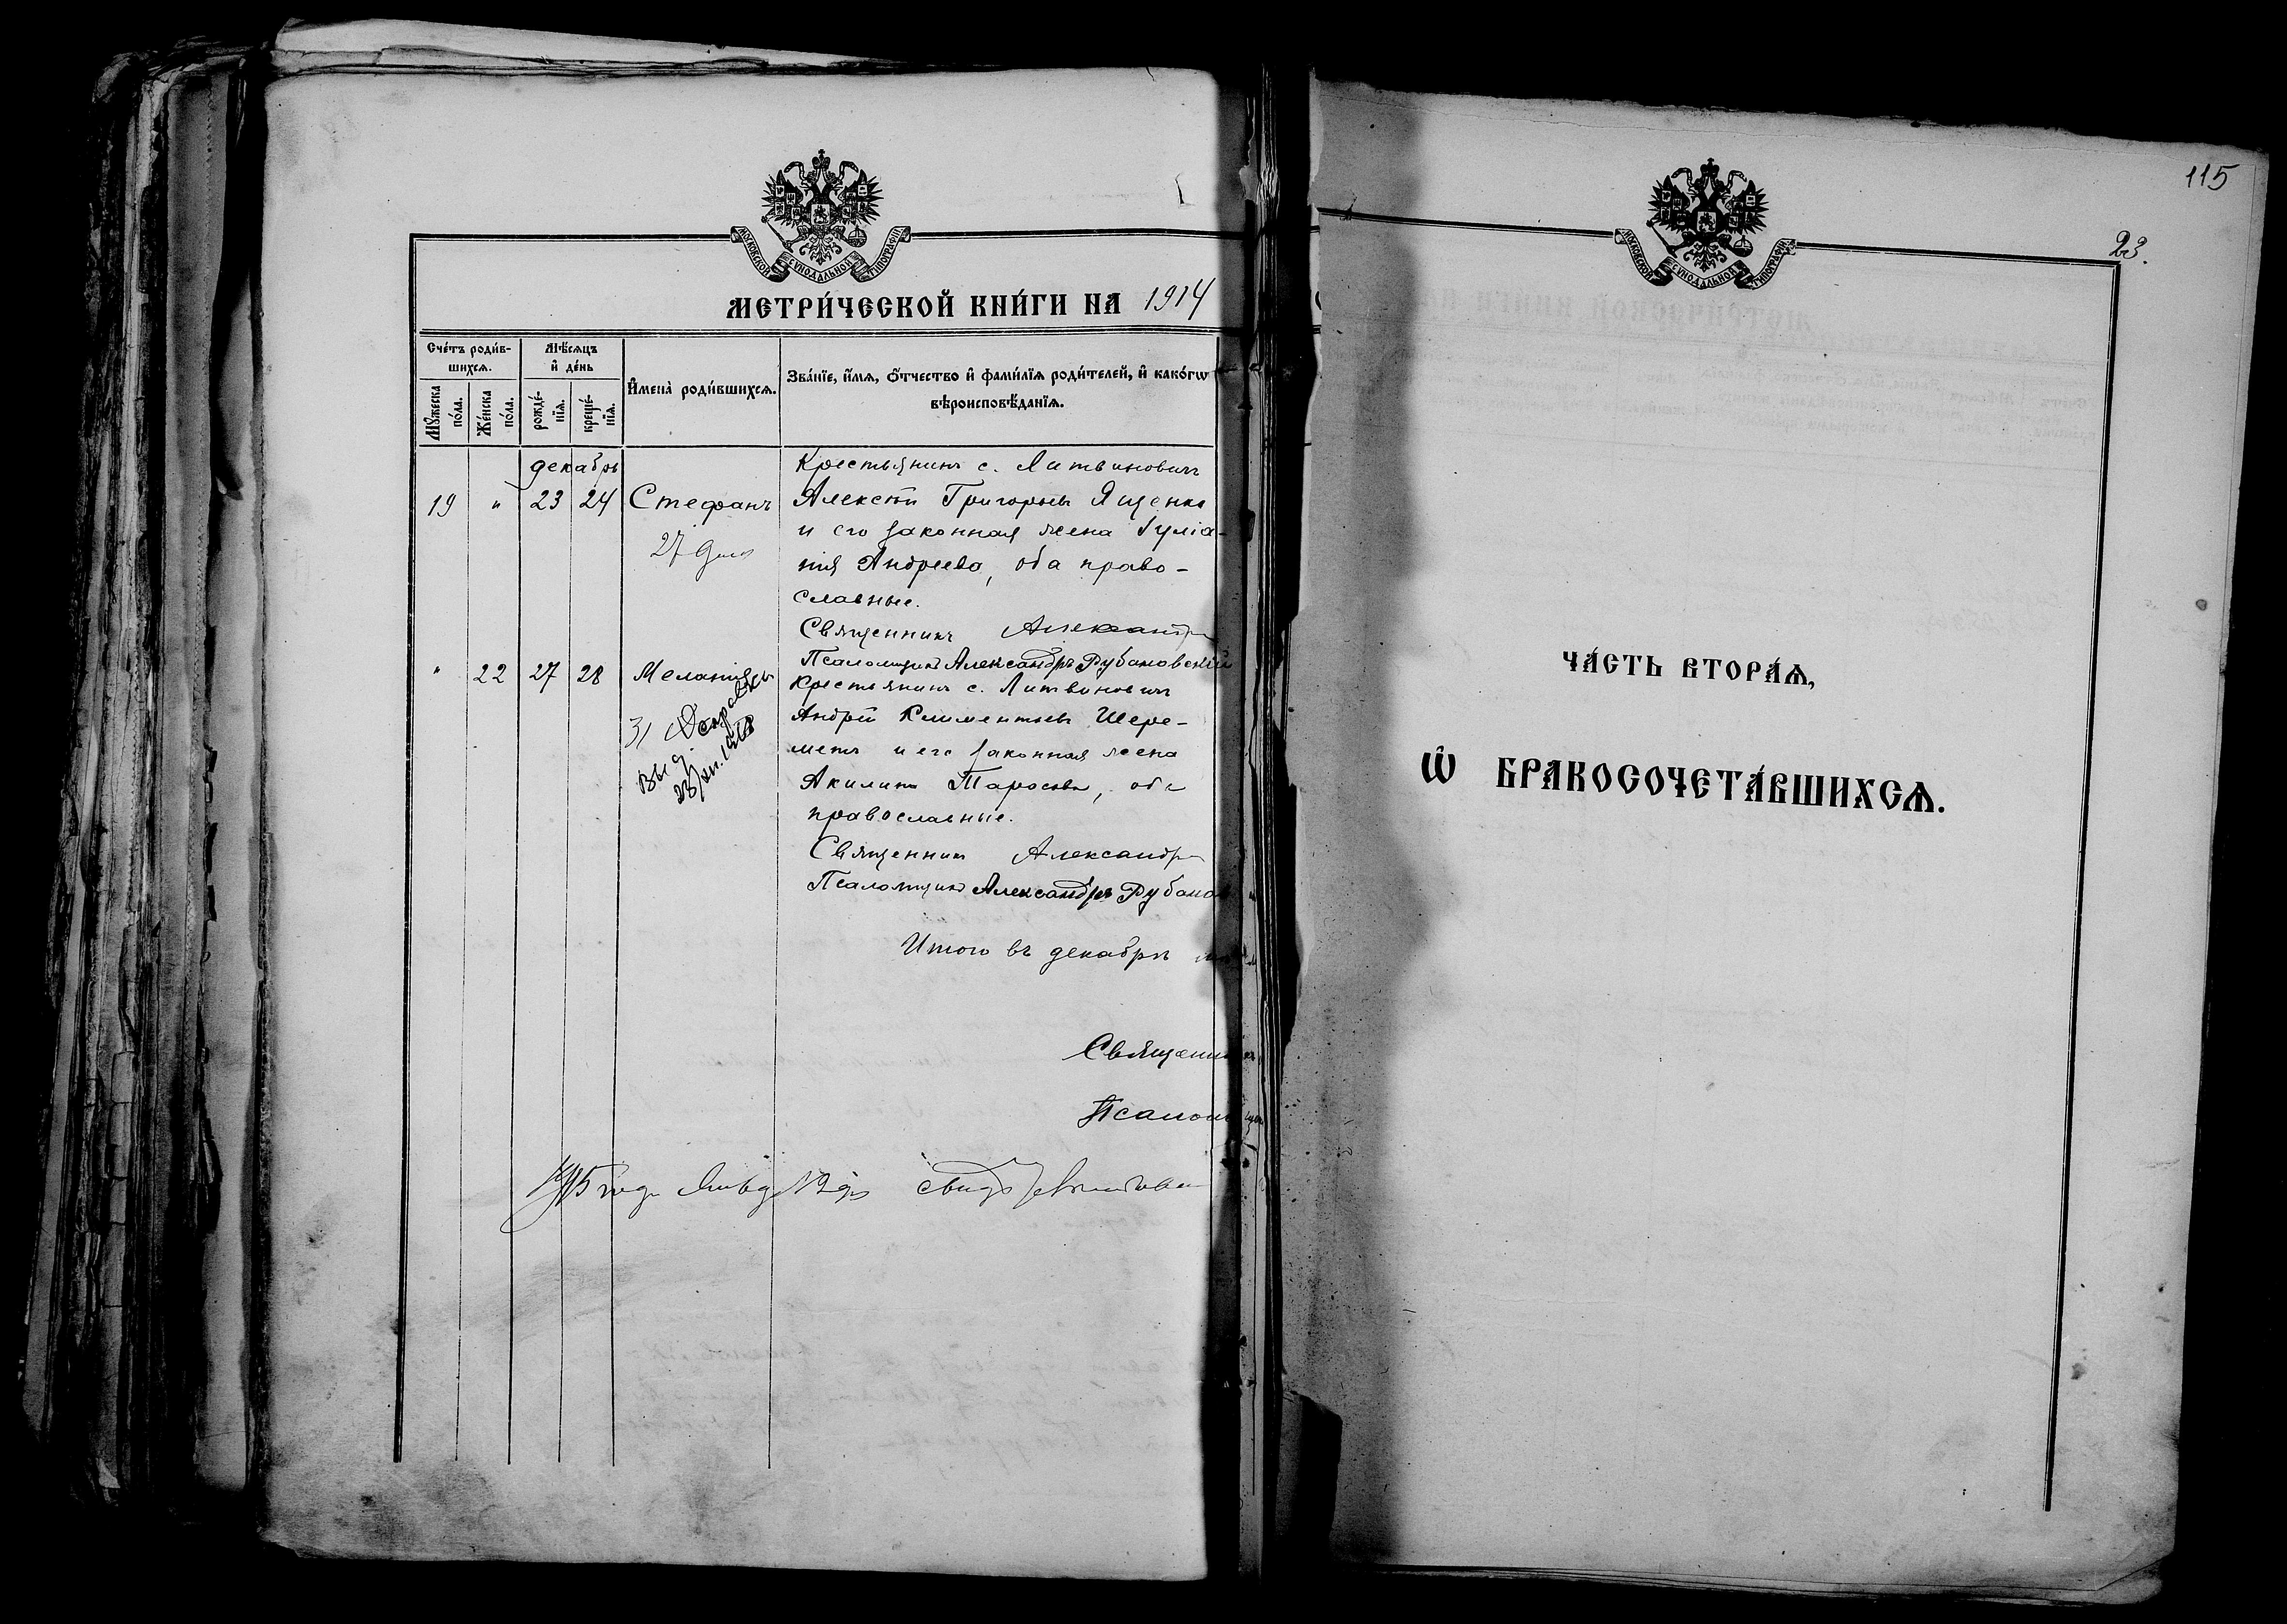 МОСКОВСКОЙ СѴНОДАЛЬНОЙ ТИПОГРАФІИ
МЕТРИ́ЧЕСКОЙ КНИ́ГИ НА 1914
Сче́тъ роди́в-
шихсѧ.
Мѣ́сѧцъ
и҆ де́нь
Мꙋ́жеска
по́ла.
Же́нска
по́ла.
рожде́-
нїѧ.
креще́-
нїѧ.
И҆мена̀ роди́вшихсѧ.
Зва́нїе, и҆́мѧ, ѻ҆́тчество и҆ фами́лїѧ роди́телей, и҆ како́гѡ
вѣроисповѣ́данїѧ.
декабрь
Крестьянинъ с. Литвиновичъ
19 " 23 24 Стефанъ Алексѣй Григорьевъ Ященко
и его законная жена Іуліа-
27 дек
нія Андреева, оба право-
славные.
Священникъ Александръ
Псаломщикъ Александръ Рубановскій
" 22 27 28 Меланія Крестьянинъ с. Литвиновичъ
Андрей Климентьевъ Шере-
31
метъ и его законная жена
Выд.
Акилина Тарасова, оба
православные.
Священникъ Александръ
Псаломщикъ Александръ Рубанов
Итого въ декабрѣ
Священникъ
Псаломщикъ
1915 года
115
23.
МОСКОВСКОЙ СѴНОДАЛЬНОЙ ТИПОГРАФІИ
ЧА́СТЬ ВТОРА́Ѧ,
Ѽ БРАКОСОЧЕТА́ВШИХСѦ.